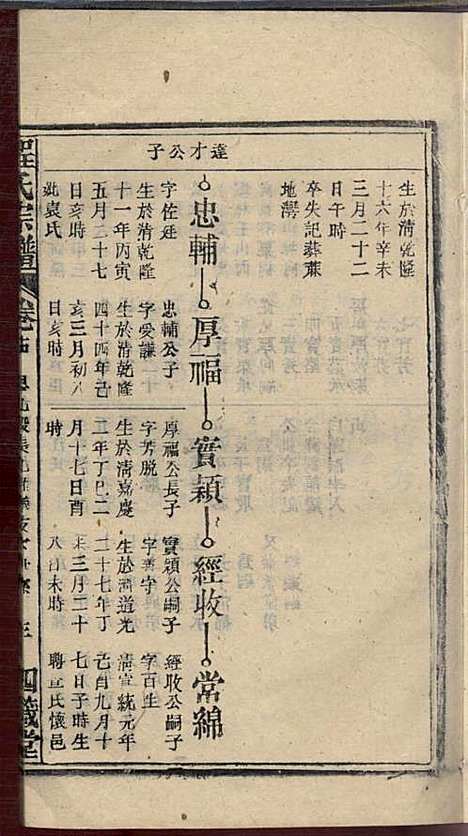 達才公子
生於清乾隆
十六年辛未
三月二十二
日午時
卒失記葬蔴
地灣
忠輔
字佐廷
生於清乾隆
十一年丙寅
五月二十七
日亥時
妣袁氏
厚福
忠輔公子
字愛謙
生於清乾隆
四十四年己
亥三月初八
日亥時
實穎
厚福公長子
字芳脱
生於清嘉慶
二年丁巳二
月十七日酉
時
經收
實穎公嗣子
字善守
生於清道光
二十七年丁
未三月二十
八日未時
常綿
經收公嗣子
字百生
清宣統元年
己酉九月十
七日子時生
聘宣氏懷邑
氏宗譜
卷
三
四箴堂